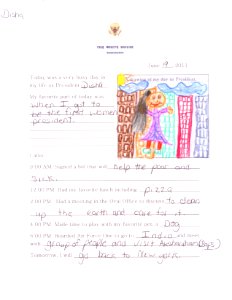 Disha
THE WHITE HOUSE
June 9
Today was a very busy day in
my life as President Disha
My favorite part of today was
when I got to
be the first women
president.
8:00 AM: Signed a bill that will help the poor and
sick.
12:00 PM: Had my favorite lunch including pizza
2:00 PM: Had a meeting in the Oval Office to discuss to clean
up the earth and care for it
4:00 PM: Made time to play with my favorite pet a Dog
6:00 PM: Boarded Air Force One to go to India and meet
with group of people and visit
Tomorrow I will go back to New york.